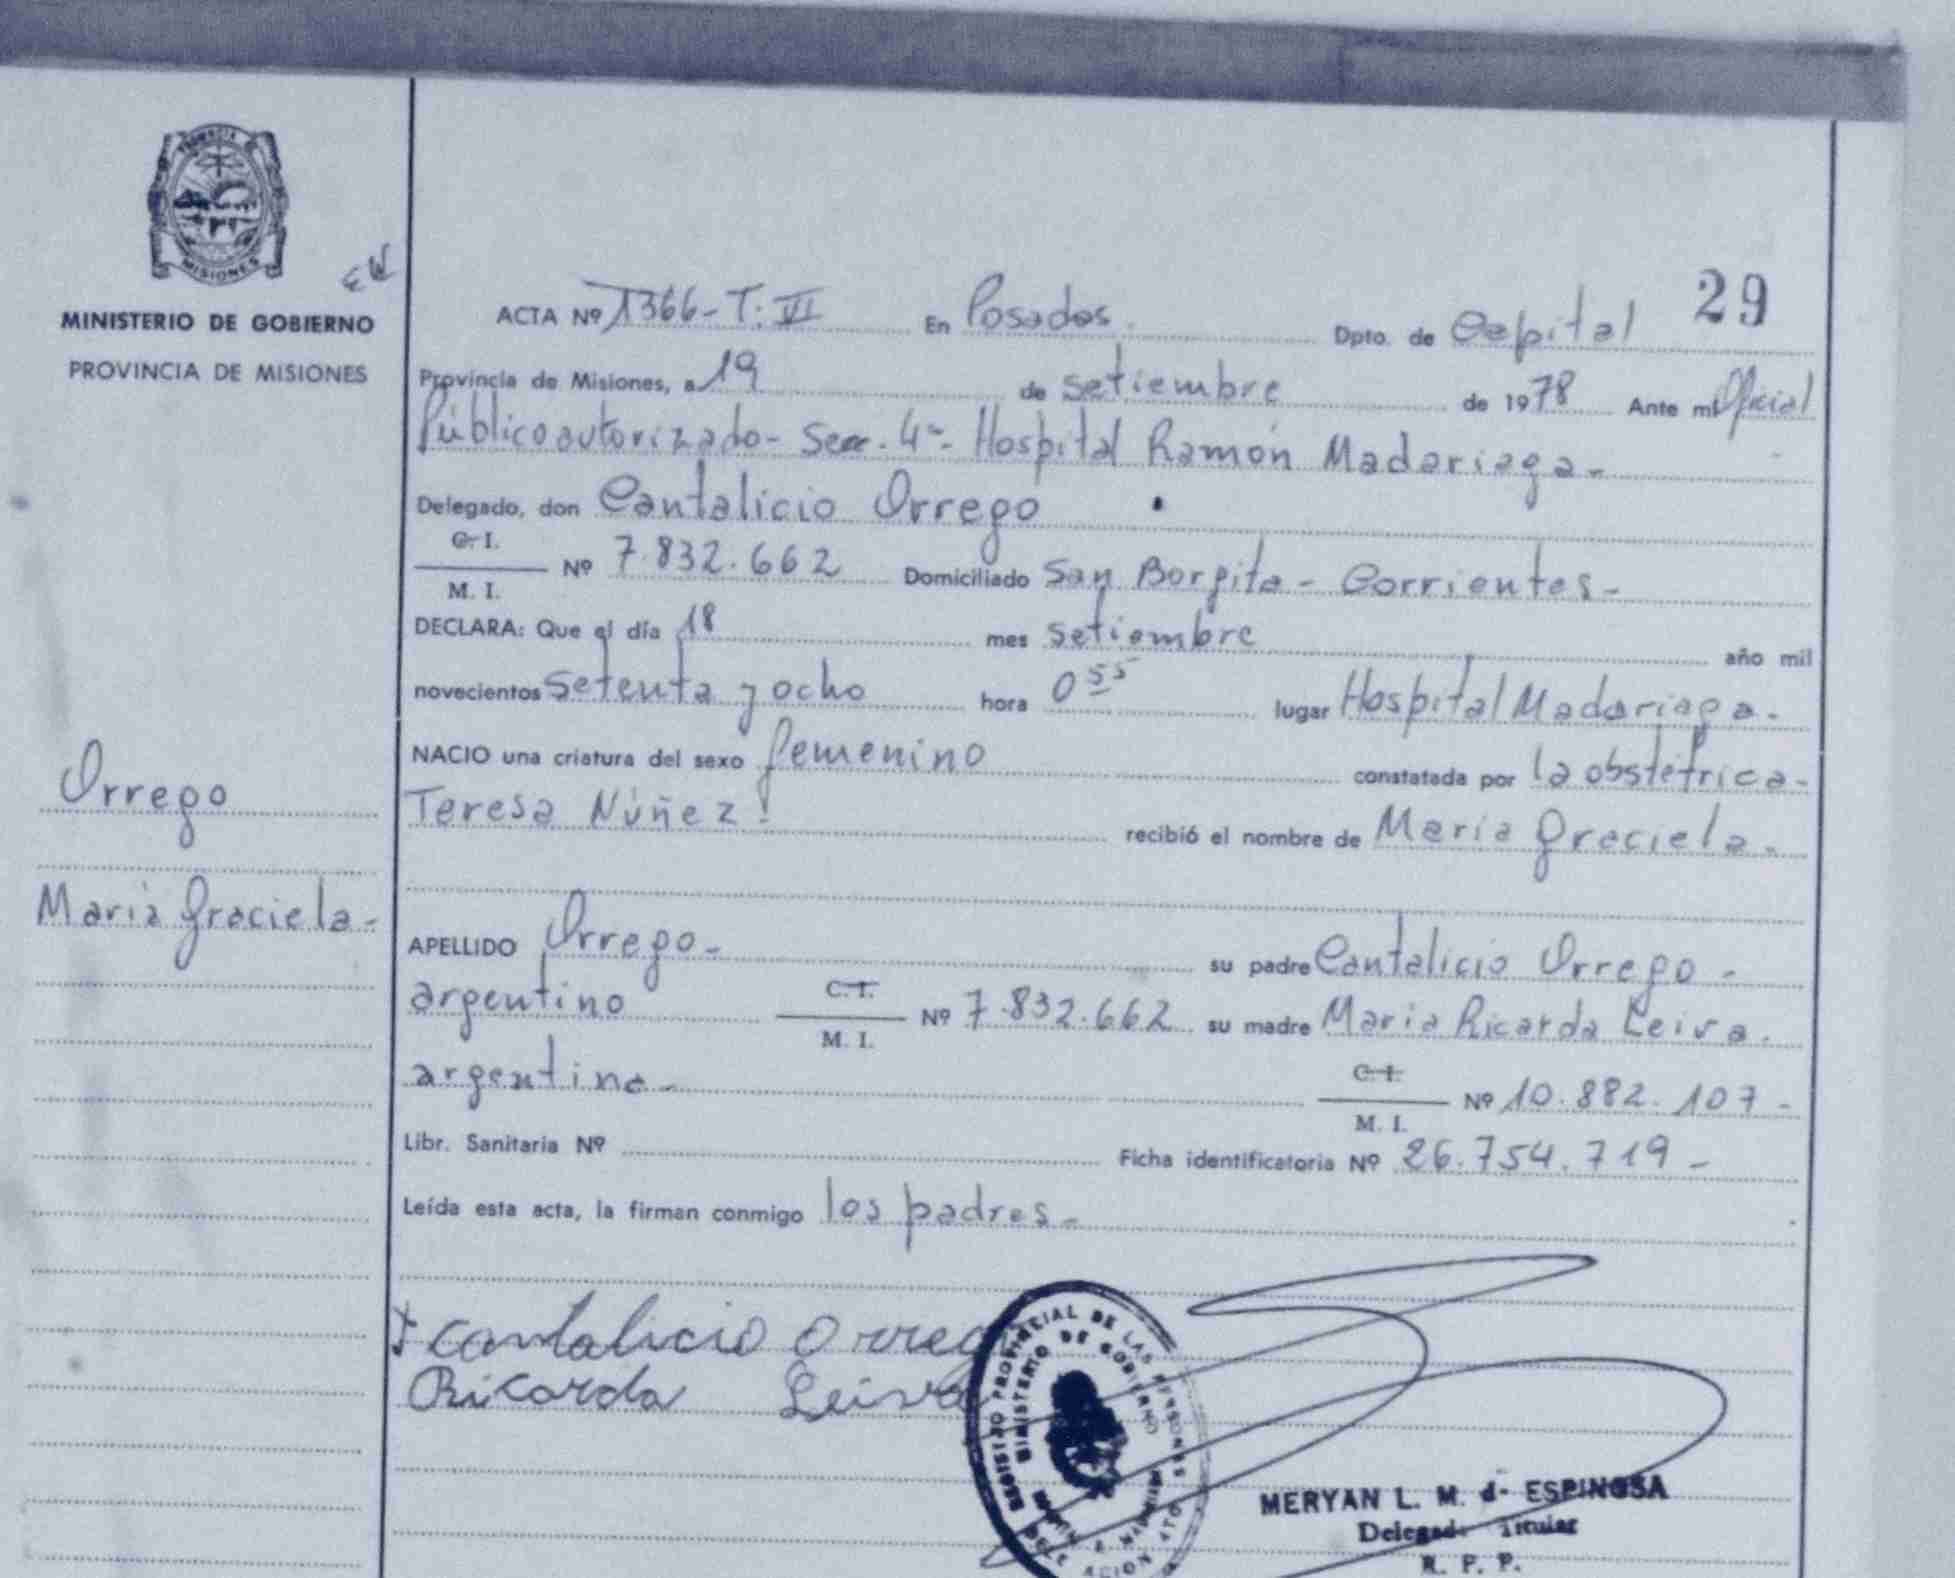 PROVINCIA DE
MISIONES
MINISTERIO DE GOBIERNO
PROVINCIA DE MISIONES
29
ACTA Nº 1366-T. VI En Posadas. Dpto. de Capital
Provincia de Misiones, a 19 de setiembre de 1978 Ante mi Oficial
Público autorizado- Sec. 4ª- Hospital Ramón Madariaga-
Delegado, don Cantalicio Orrego
C. I.
M. I. Nº 7.832.662 Domiciliado San Borgita - Corrientes-
DECLARA: Que el día 18 mes setiembre año mil
novecientos setenta y ocho hora 0 55 lugar Hospital Madariaga-
NACIO una criatura del sexo femenino constatada por la obstétrica-
Teresa Núñez! recibió el nombre de María Graciela-
Orrego
María Graciela-
APELLIDO Orrego- su padre Cantalicio Orrego-
argentino C.I. M. I. Nº 7.832.662 su madre Maria Ricarda Leiva.
argentina- C.I. M. I. Nº 10.882.107-
Libr. Sanitaria Nº Ficha identificatoria Nº 26.754.719-
Leída esta acta, la firman conmigo los padres-
Cantalicio Orrego
Ricarda Leiva
REGISTRO PROVINCIAL DE LAS PERSONAS
MINISTERIO DE GOBIERNO
MERYAN L. M. de ESPINOSA
Delegada Titular
R. P. P.